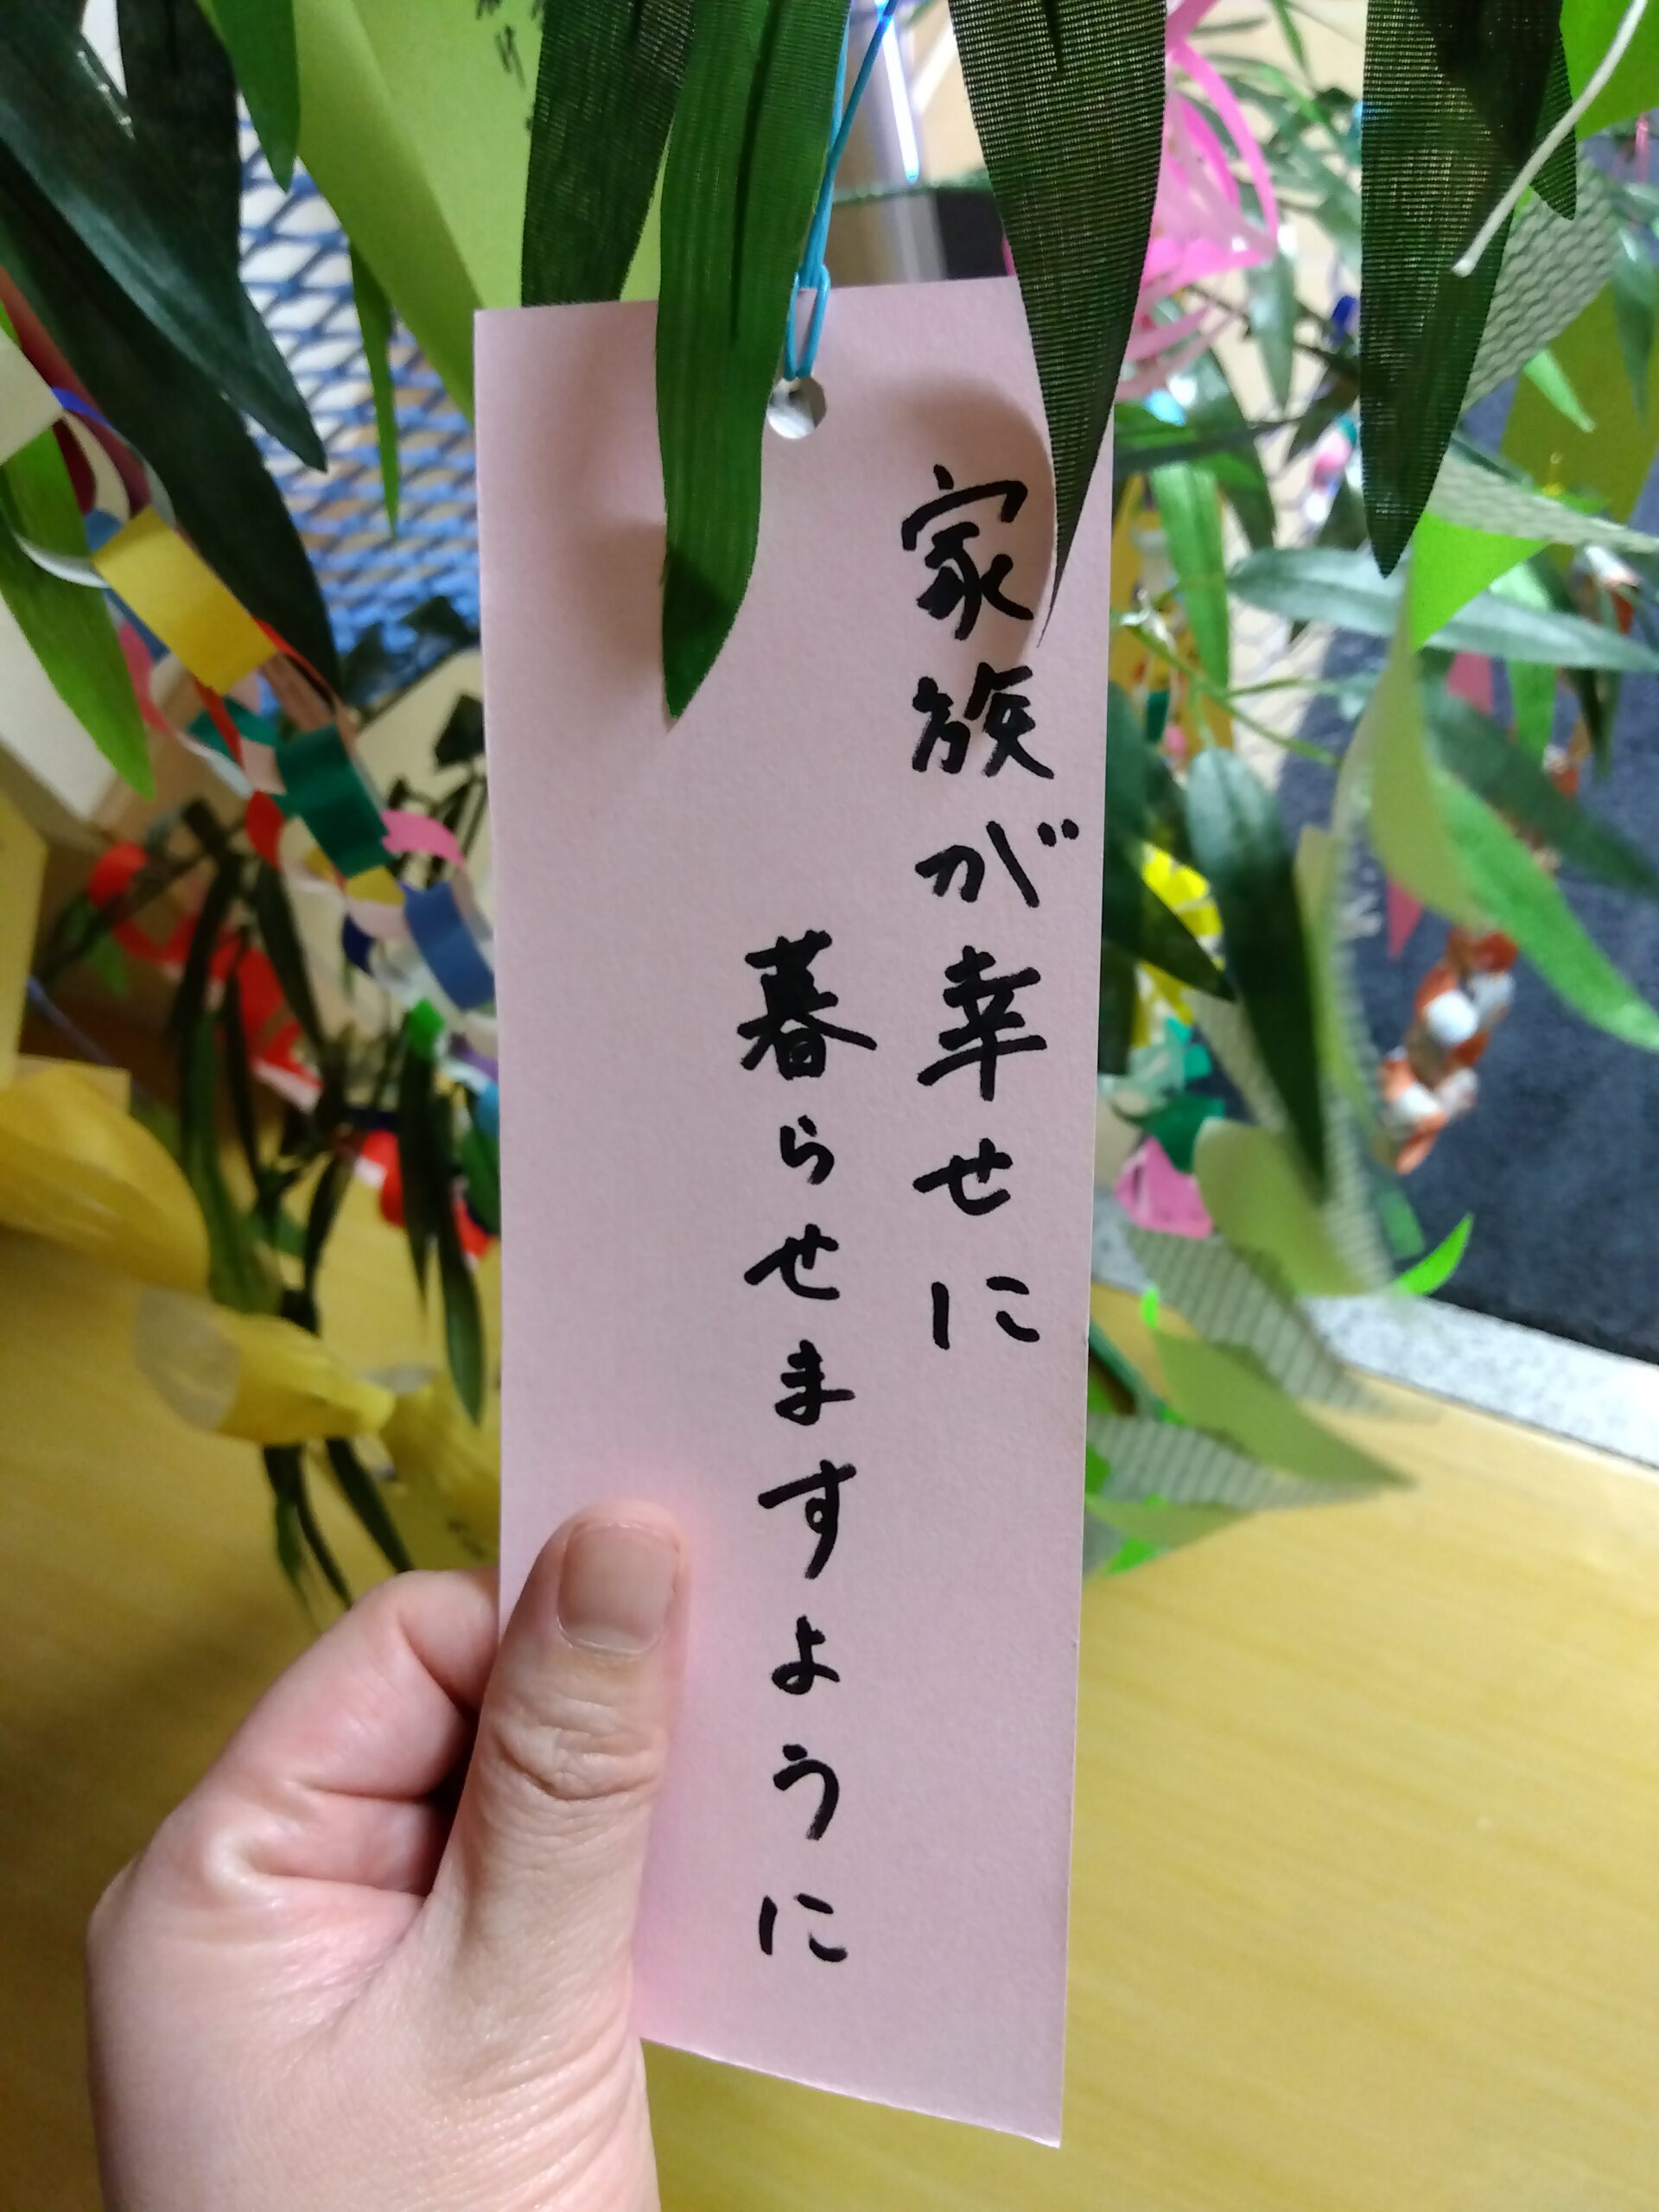 家族が幸せに
暮らせますように